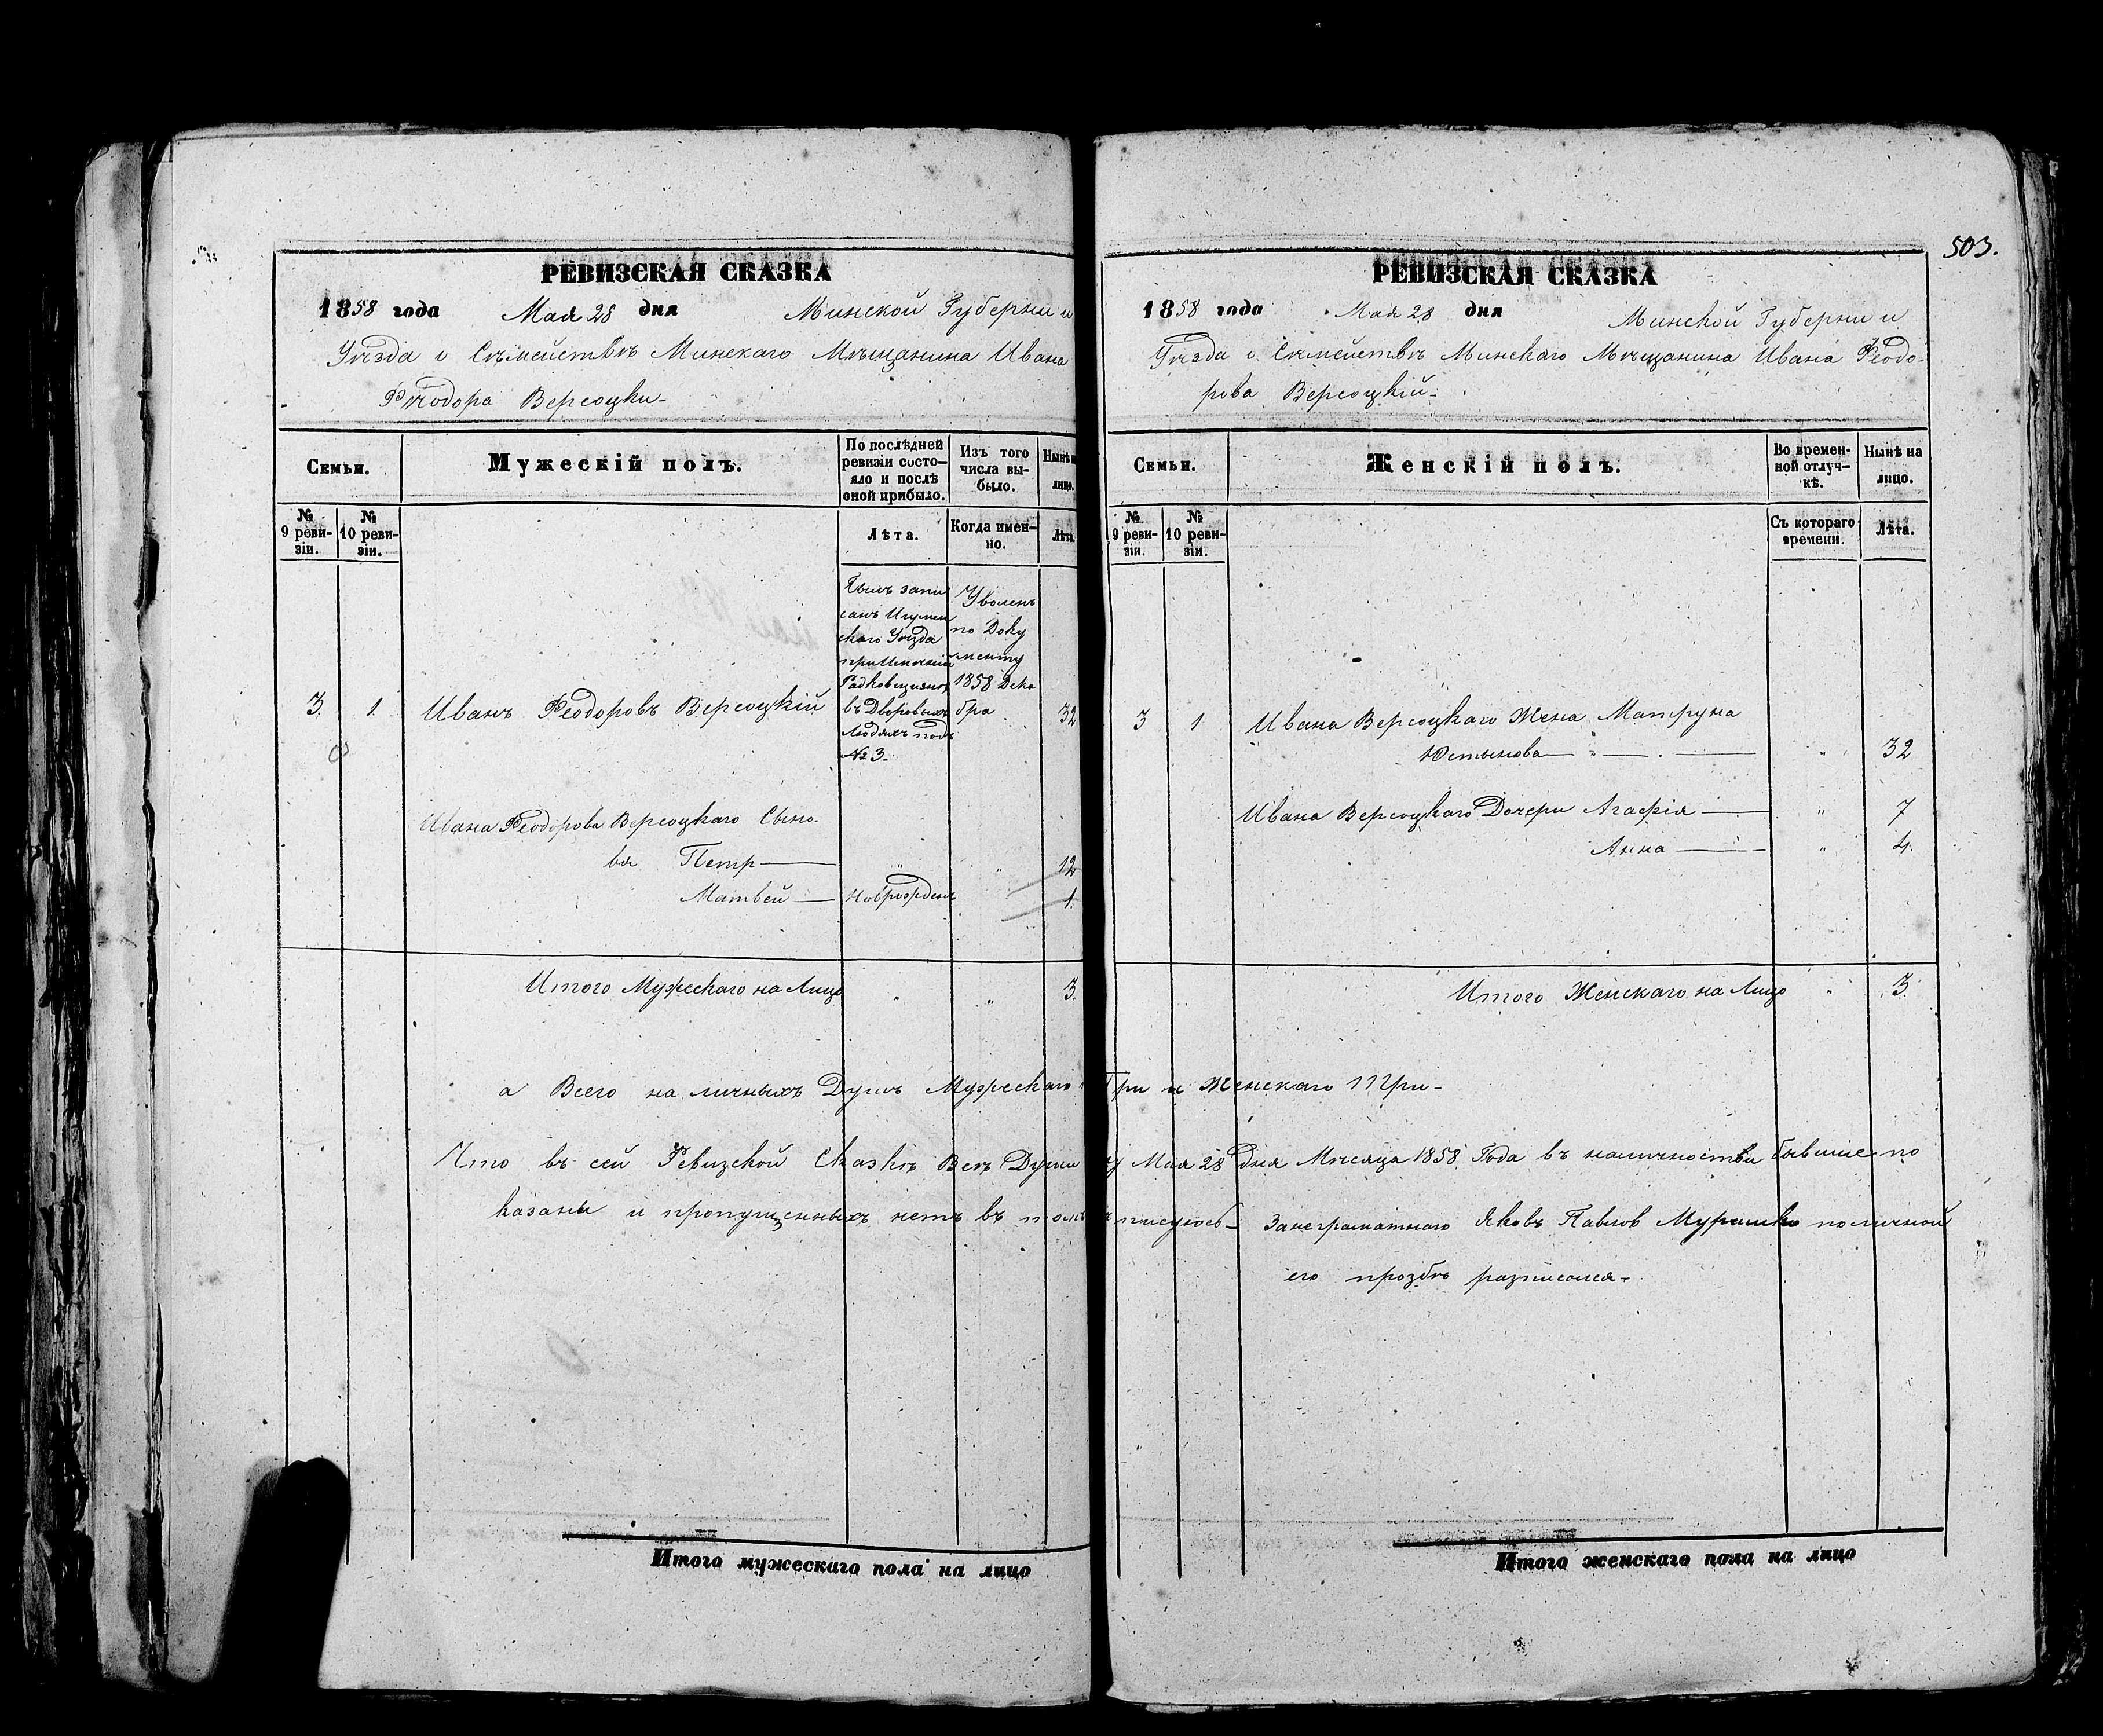 503.
РЕВИЗСКАЯ СКАЗКА
1858 года Мая 28 дня Минской Губернии и
Уѣзда о Съмействѣ Минскаго Мѣщанина Ивана
Фѣодора Версоцки-
Семьи.
Мужескій полъ.
По послѣдней ревизіи состо-
яло и послѣ
оной прибыло.
Изъ того
числа вы-
было.
Нынѣ на
лицо.
№
9 реви-
зіи.
№
10 реви-
зіи.
Лѣта.
Когда имен-
но.
Лѣта.
Былъ запи
санъ Игумен
скаго Уѣзда
при Имѣніи
въ Дворовыхъ
Людяхъ подъ
№ 3.
Уволенъ
по Доку
менту
1858 Дека
бра
3. 1. Иванъ Феодоровъ Версоцкій 32
Ивана Феодорова Версоцкаго Сыно-
вя Петр 12
Матвей Новрожден 1.
Итого Мужескаго на Лицо " " 3.
РЕВИЗСКАЯ СКАЗКА
1858 года Мая 28 дня Минской Губернии и
Уѣзда о Съмействѣ Минскаго Мѣщанина Ивана Феодо-
рова Версоцкій-
Семьи.
Женскій полъ.
Во времен-
ной отлуч-
кѣ.
Нынѣ на
лицо.
№
9 реви-
зіи.
№
10 реви-
зіи.
Съ котораго
времени.
Лѣта.
3 1 Ивана Версоцкаго Жена Матруна
Юстынова " 32
Ивана Версоцкаго Дочери Агафія " 7
Анна " 4.
Итого Женскаго на Лицо " 3.
а Всего на личныхъ Душъ Мужескаго Три и Женскаго Три-
Что въ сей Ревизской Сказкѣ Всѣ Души Мая 28 дня Мѣсяца 1858 Года въ наличности бывшіе по
казаны и пропущенныхъ нетъ въ томъ Занеграматнаго Яковъ Павлов Мурашко поличной
его прозбѣ разписался-
Итого мужескаго пола на лицо
Итого женскаго пола на лицо